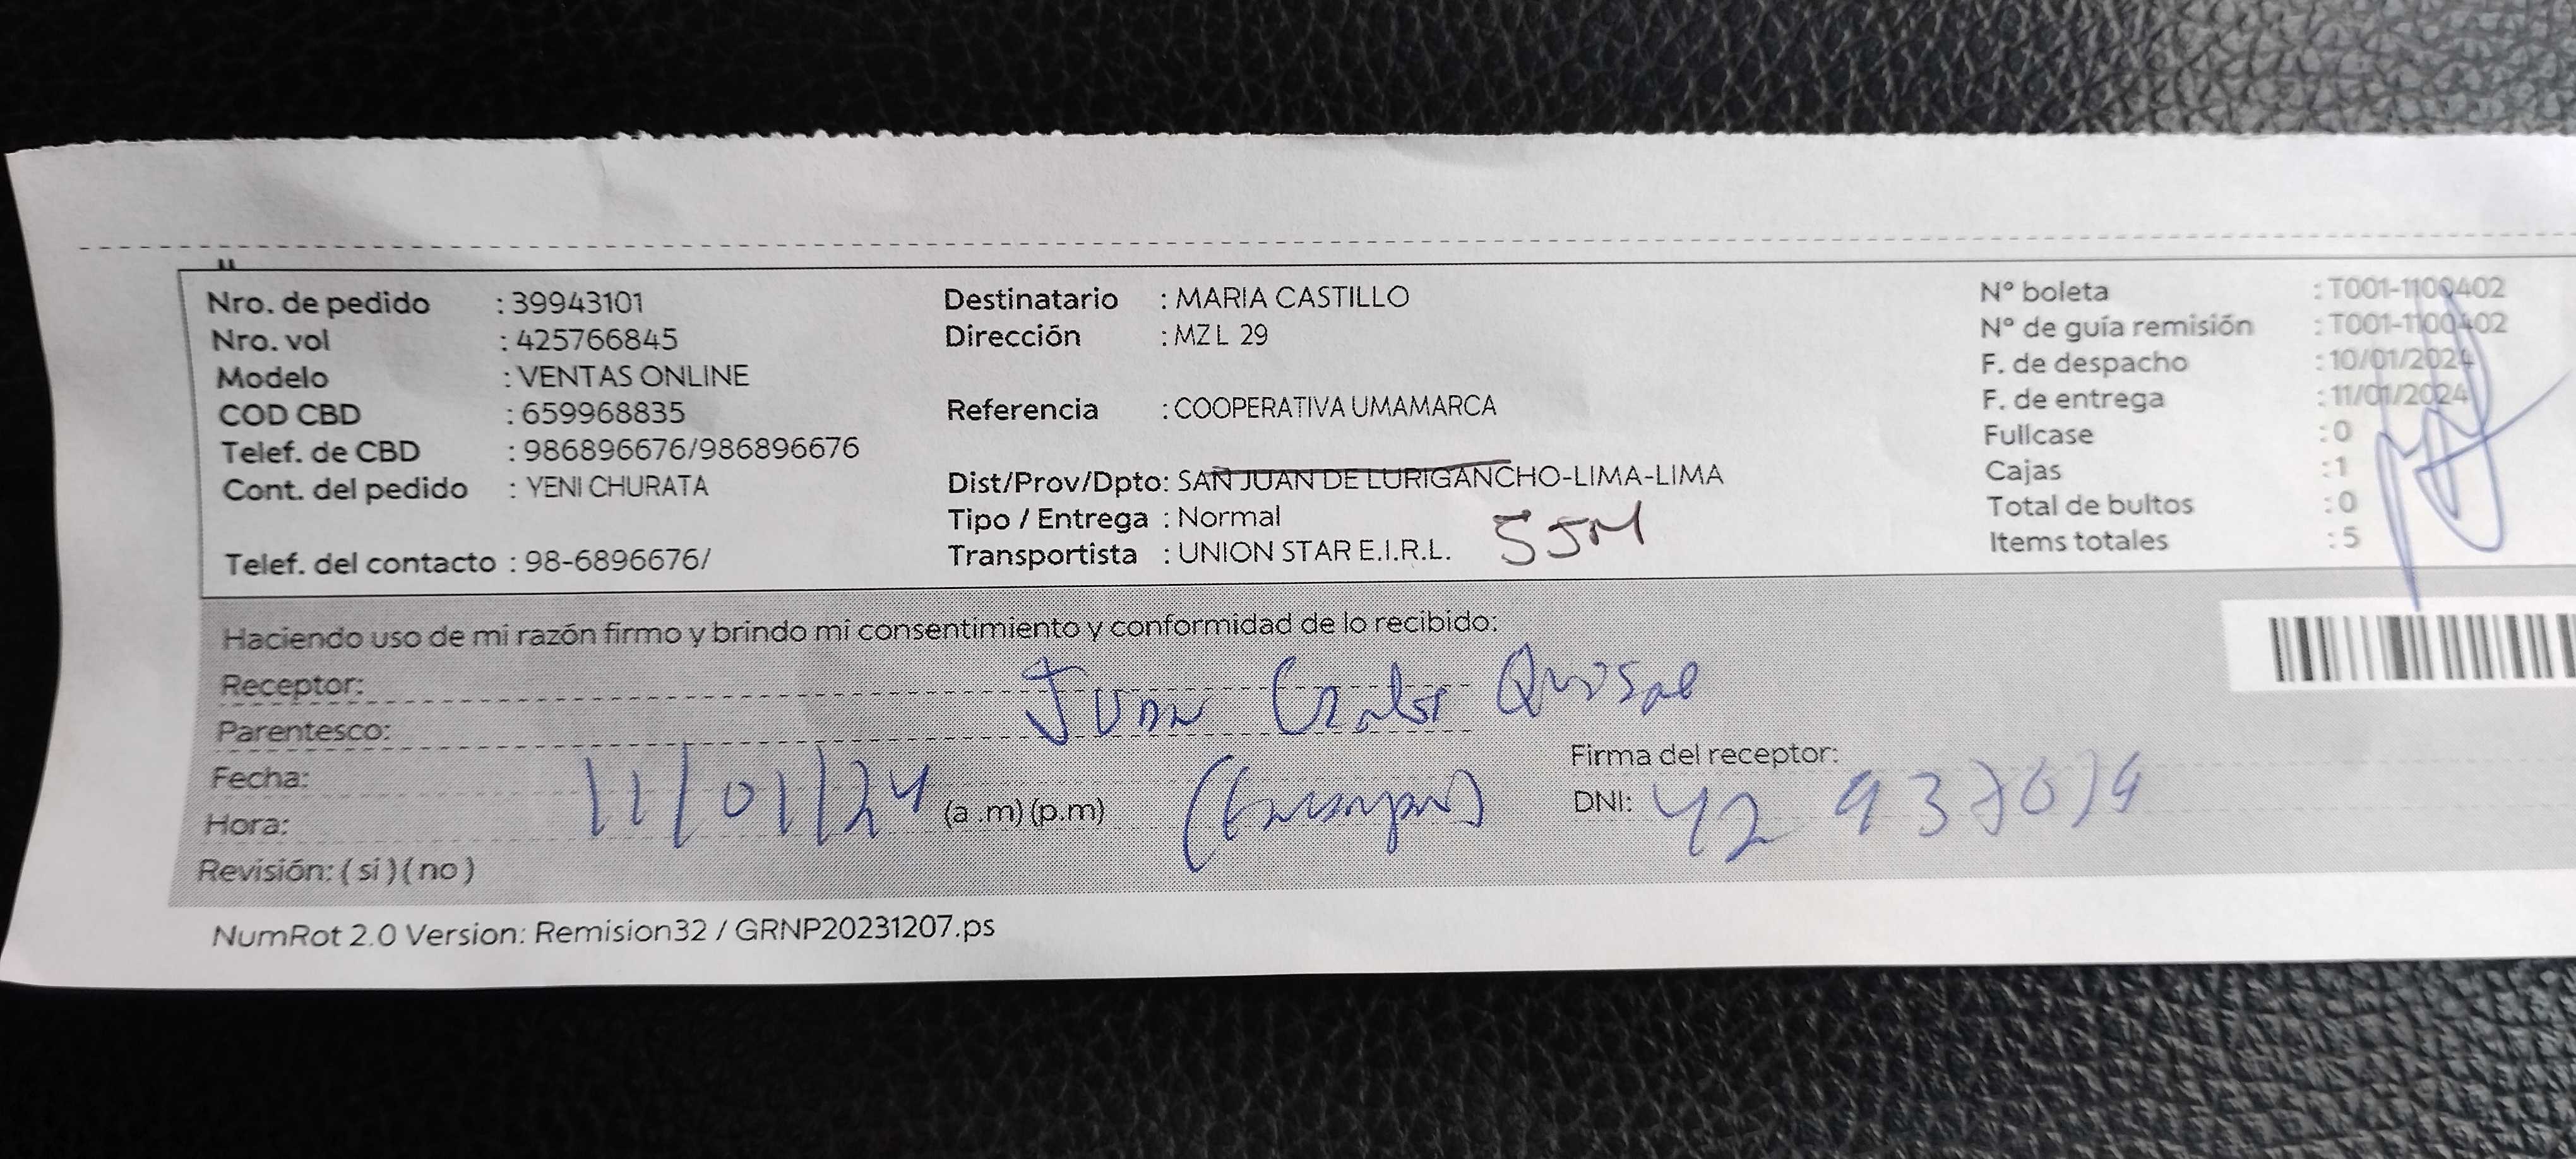 Nro. de pedido : 39943101
Nro. vol : 425766845
Modelo : VENTAS ONLINE
COD CBD : 659968835
Telef. de CBD : 986896676/986896676
Cont. del pedido : YENI CHURATA
Telef. del contacto : 98-6896676/
Destinatario : MARIA CASTILLO
Dirección : MZ L 29
Referencia : COOPERATIVA UMAMARCA
Dist/Prov/Dpto: SAN JUAN DE LURIGANCHO-LIMA-LIMA
Tipo / Entrega : Normal
SJM
Transportista : UNION STAR E.I.R.L.
N° boleta : T001-1100402
N° de guía remisión : T001-1100402
F. de despacho : 10/01/2024
F. de entrega : 11/01/2024
Fullcase : 0
Cajas : 1
Total de bultos : 0
Items totales : 5
Haciendo uso de mi razón firmo y brindo mi consentimiento y conformidad de lo recibido:
Receptor: Juan Carlos
Parentesco:
Fecha: 11/01/24
Hora: (a .m) (p.m)
Revisión: ( si ) ( no )
Firma del receptor:
DNI:
NumRot 2.0 Version: Remision32 / GRNP20231207.ps